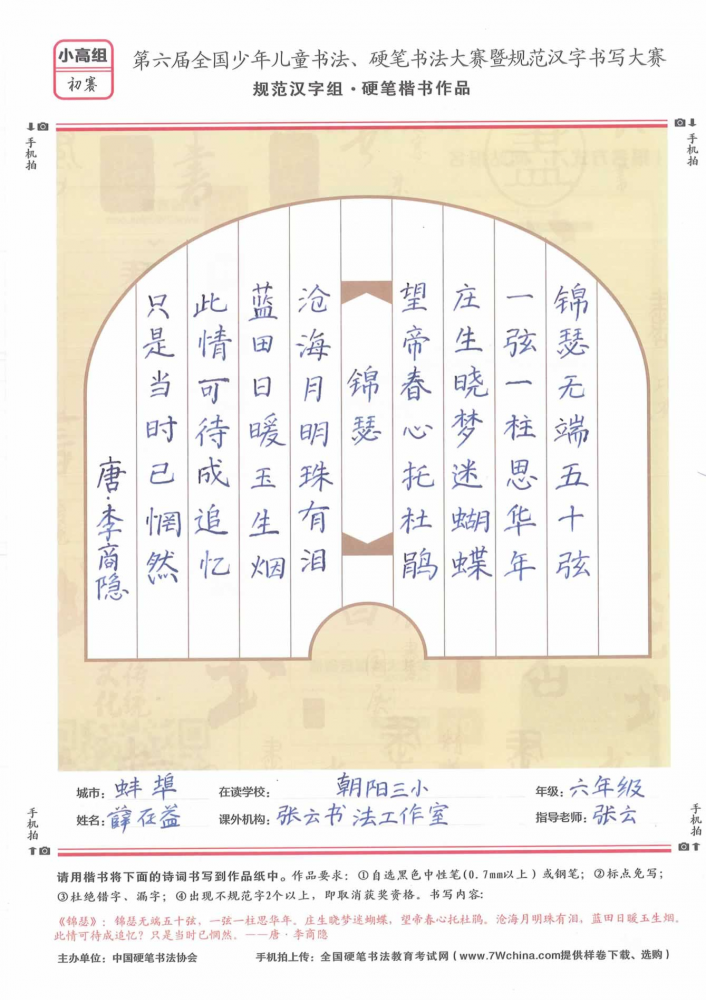 小高组
初赛
第六届全国少年儿童书法、硬笔书法大赛暨规范汉字书写大赛
规范汉字组·硬笔楷书作品
手机拍
手机拍
锦瑟无端五十弦
一弦一柱思华年
庄生晓梦迷蝴蝶
望帝春心托杜鹃
锦瑟
沧海月明珠有泪
蓝田日暖玉生烟
此情可待成追忆
只是当时已惘然
唐·李商隐
城市：蚌埠 在读学校：朝阳三小 年级：六年级
姓名：薛在益 课外机构：张云书法工作室 指导老师：张云
手机拍
手机拍
请用楷书将下面的诗词书写到作品纸中。作品要求：①自选黑色中性笔(0.7mm以上)或钢笔；②标点免写；
③杜绝错字、漏字；④出现不规范字2个以上，即取消获奖资格。书写内容：
《锦瑟》：锦瑟无端五十弦，一弦一柱思华年。庄生晓梦迷蝴蝶，望帝春心托杜鹃。沧海月明珠有泪，蓝田日暖玉生烟。
此情可待成追忆？只是当时已惘然。——唐·李商隐
主办单位：中国硬笔书法协会 手机拍上传：全国硬笔书法教育考试网(www.7Wchina.com提供样卷下载、选购)